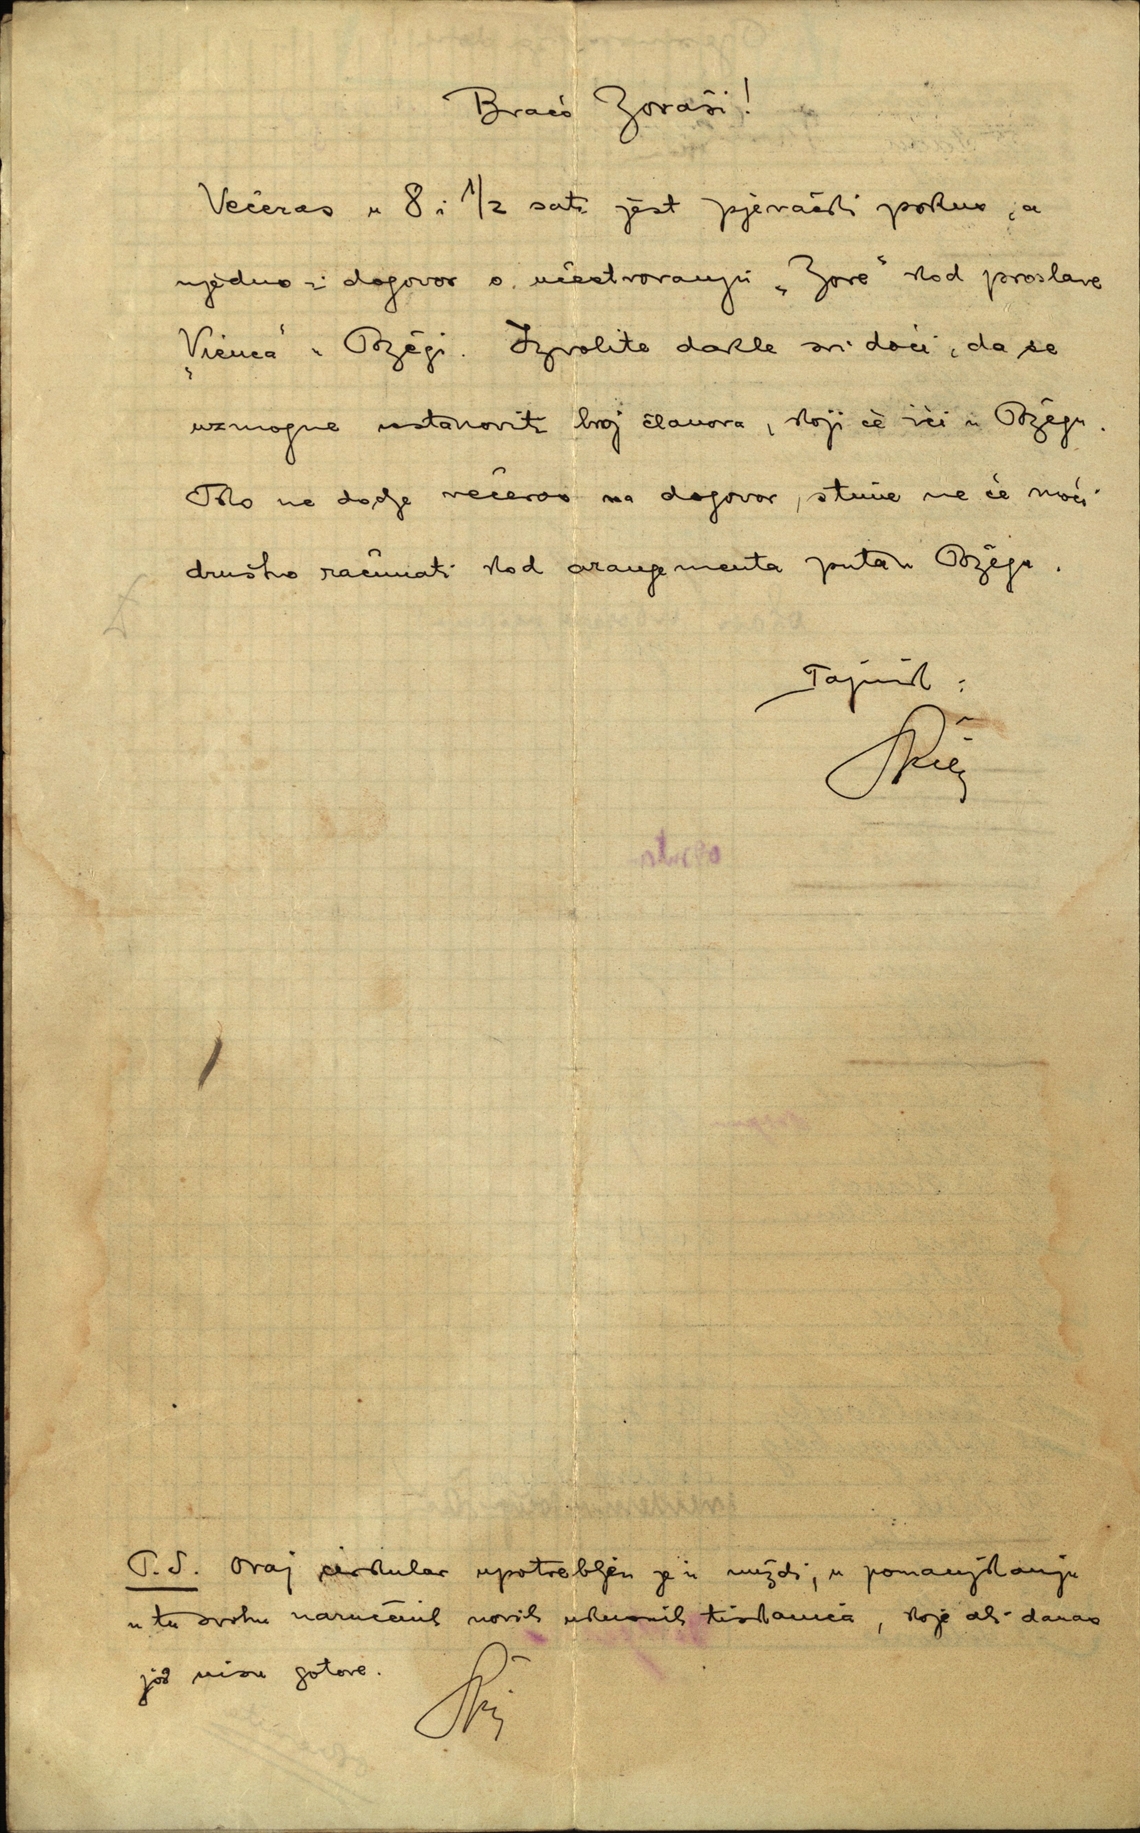 Braćo Zoraši!
Večeras u 8 i 1/2 sati jest pjevački pokus, a
ujedno i dogovor o učestvovanju „Zore“ kod proslave
„Vienca“ u Požegi. Izvolite dakle svi doći, da se
uzmogne ustanoviti broj članova, koji će ići u Požegu.
Tko ne dodje večeras na dogovor, s time ne će moći
društvo računati kod arangementa puta u Požegu.
Tajnik:
P.S. Ovaj cirkular upotrebljen je u nuždi, u pomanjkanju
u tu svrhu naručenih novih ukusnih tiskanica, koje ali danas
još nisu gotove.